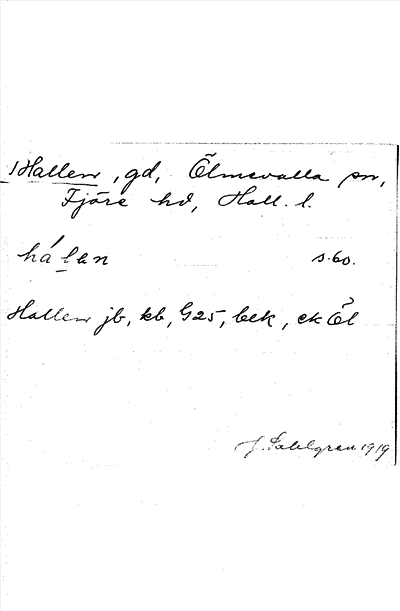 Hallen, gd, Ölmevalla sn,
Fjäre hd, Hall. l.
hálen s. 60.
Hallen jb, kb, G25, bek, ek Öl
J. Sahlgren 1919